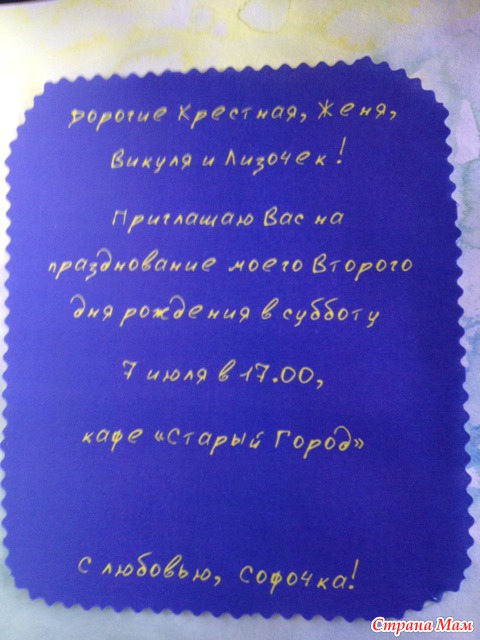 Дорогие Крестная, Женя,
Викуля и Лизочек!
Приглашаю Вас на
празднование моего Второго
дня рождения в субботу
7 июля в 17.00,
кафе «Старый Город»
С любовью, Софочка!
Страна Мам